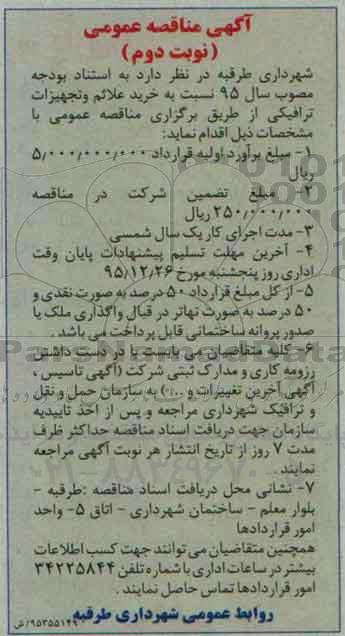 آگهی مناقصه عمومی
(نوبت دوم)
شهرداری طرقبه در نظر دارد به استناد بودجه
مصوب سال ۹۵ نسبت به خرید علائم وتجهیزات
ترافیکی از طریق برگزاری مناقصه عمومی با
مشخصات ذیل اقدام نماید:
۱- مبلغ برآورد اولیه قرارداد ۵/۰۰۰/۰۰۰/۰۰۰
ریال
۲- مبلغ تضمین شرکت در مناقصه
۲۵۰/۰۰۰/۰۰۰ ریال
۳- مدت اجرای کار یک سال شمسی
۴- آخرین مهلت تسلیم پیشنهادات پایان وقت
اداری روز پنجشنبه مورخ ۹۵/۱۲/۲۶
۵- از کل مبلغ قرارداد ۵۰ درصد به صورت نقدی و
۵۰ درصد به صورت تهاتر در قبال واگذاری ملک یا
صدور پروانه ساختمانی قابل پرداخت می باشد .
۶- کلیه متقاضیان می بایست با در دست داشتن
رزومه کاری و مدارک ثبتی شرکت (آگهی تاسیس ،
آگهی آخرین تغییرات و ...) به سازمان حمل و نقل
و ترافیک شهرداری مراجعه و پس از اخذ تاییدیه
سازمان جهت دریافت اسناد مناقصه حداکثر ظرف
مدت ۷ روز از تاریخ انتشار هر نوبت آگهی مراجعه
نمایند .
۷- نشانی محل دریافت اسناد مناقصه :طرقبه -
بلوار معلم - ساختمان شهرداری - اتاق ۵- واحد
امور قراردادها
همچنین متقاضیان می توانند جهت کسب اطلاعات
بیشتر در ساعات اداری با شماره تلفن ۳۴۲۲۵۸۴۴
امور قراردادها تماس حاصل نمایند .
روابط عمومی شهرداری طرقبه
۹۵۳۵۵۱۴۹/ش